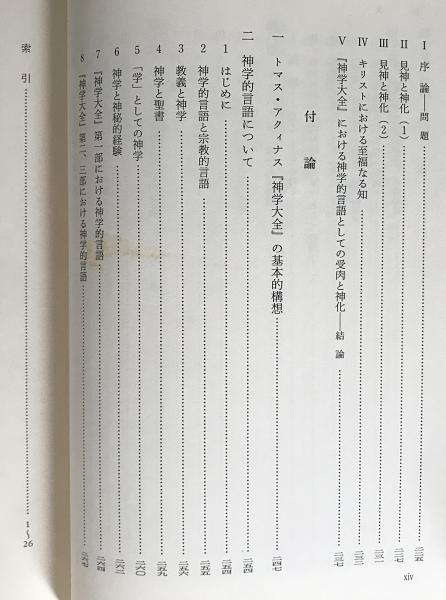 I 序 論――問 題……二一五
II 見神と神化（1）……二二七
III 見神と神化（2）……二三一
IV キリストにおける至福なる知……二三二
V 『神学大全』における神学的言語としての受肉と神化――結 論……二三七
付 論
一 トマス・アクィナス『神学大全』の基本的構想……二四七
二 神学的言語について……二五四
1 はじめに……二五四
2 神学的言語と宗教的言語……二五五
3 教義と神学……二五六
4 神学と聖書……二五九
5 「学」としての神学……二六〇
6 神学と神秘的経験……二六二
7 『神学大全』第一部における神学的言語……二六四
8 『神学大全』第二、三部における神学的言語……二六七
索 引……1〜26
xiv